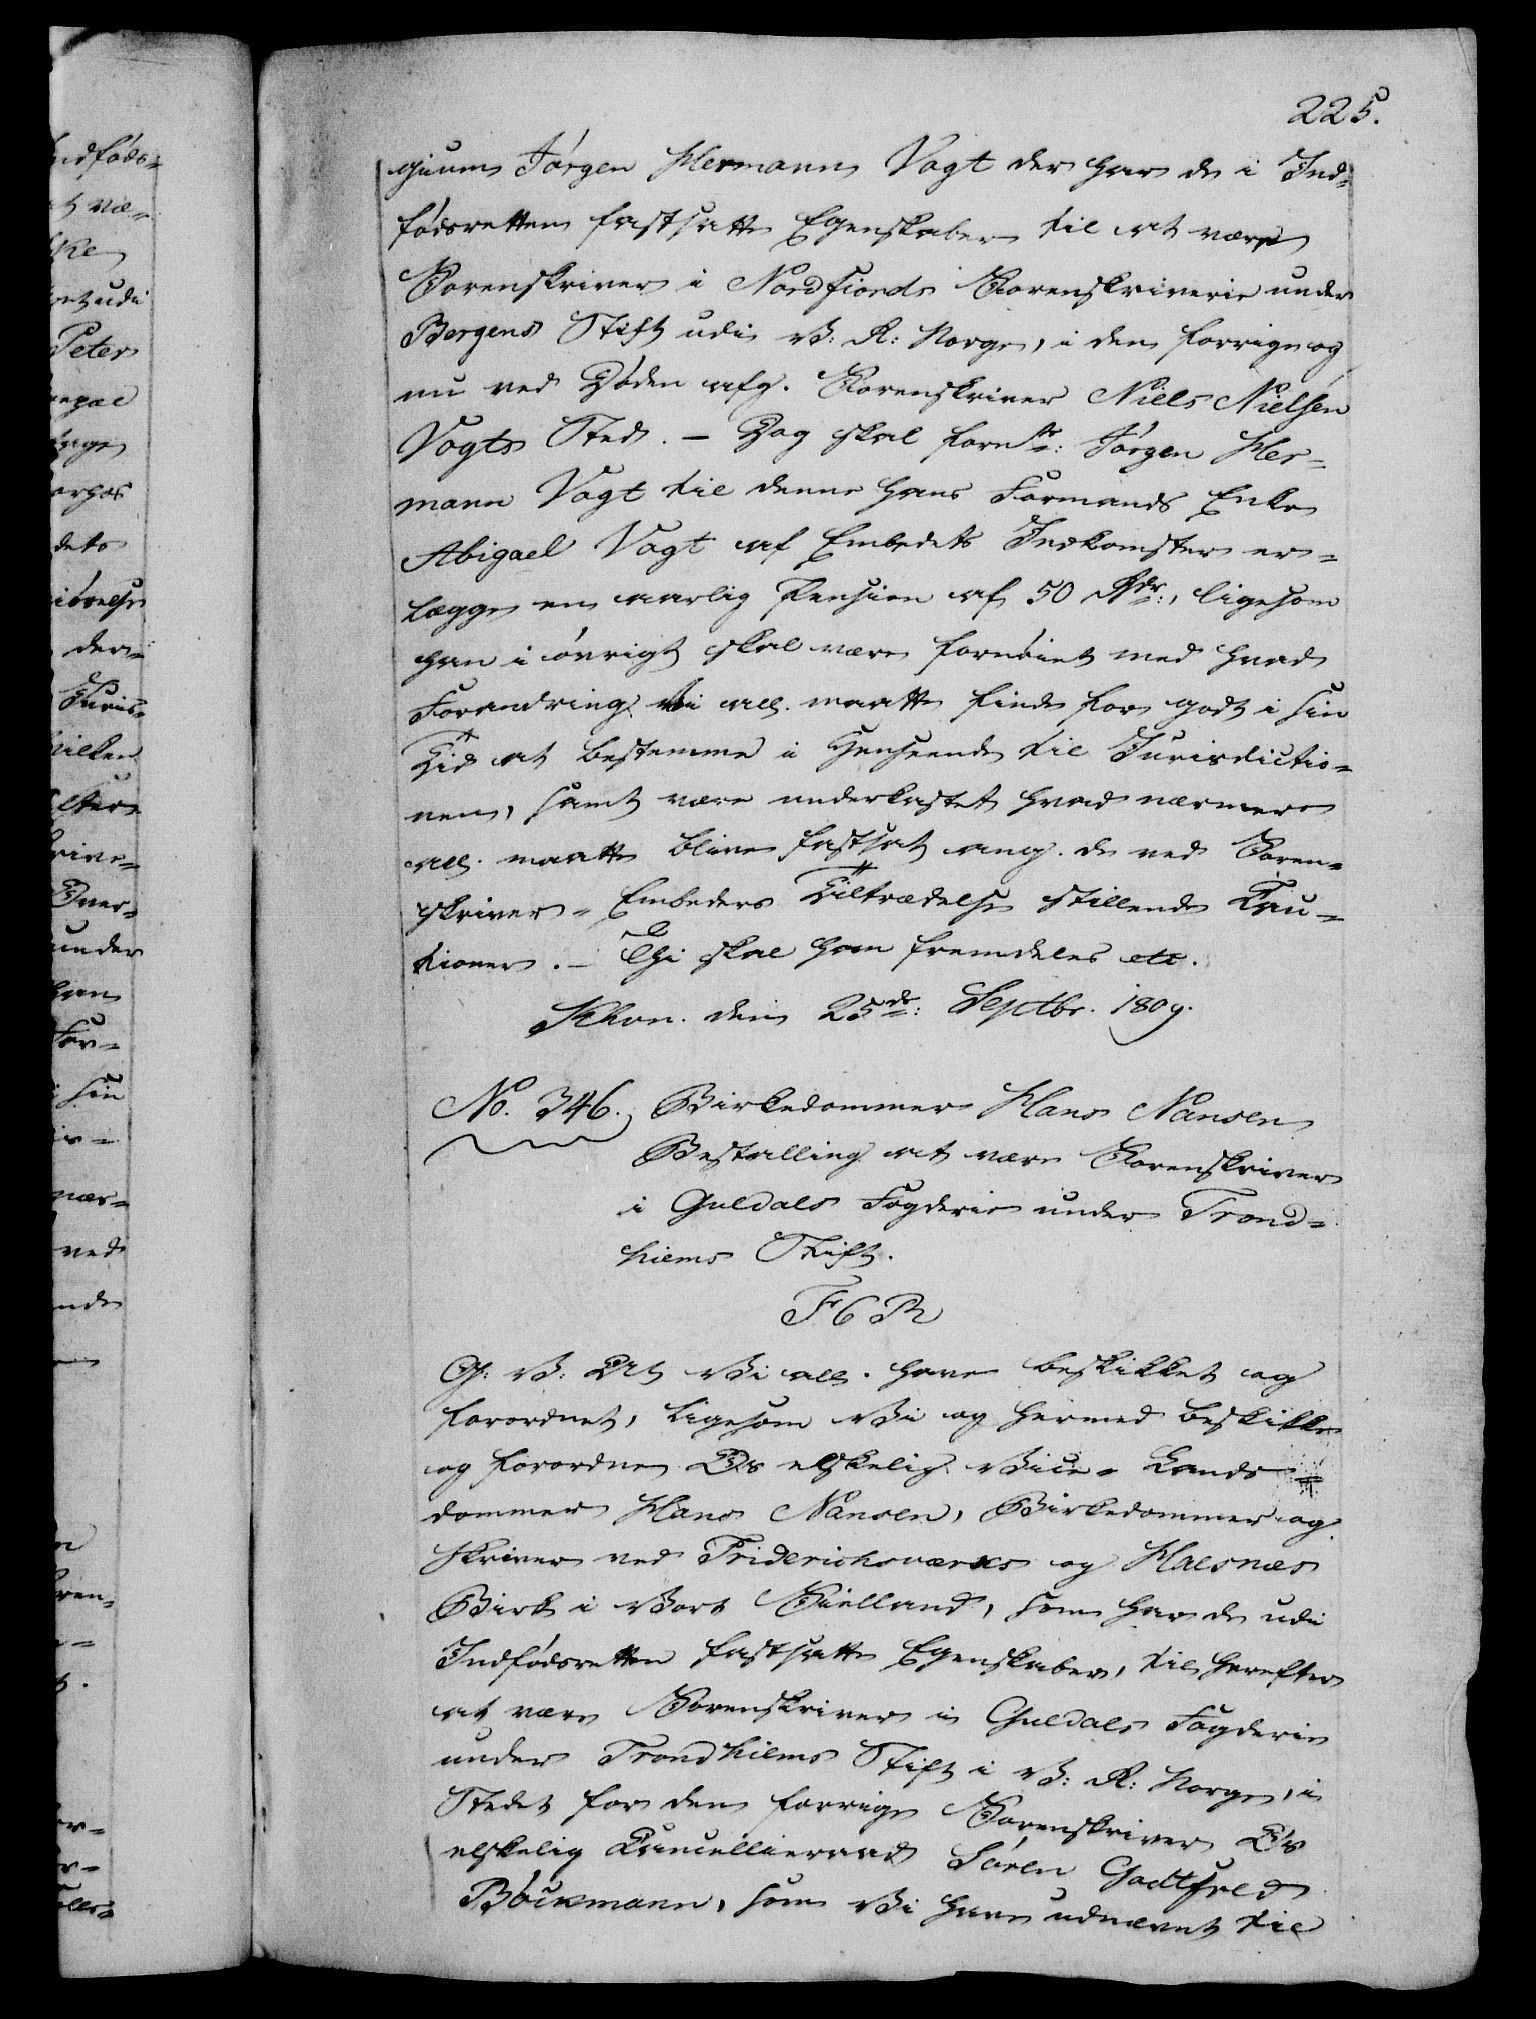 225.
gium Jørgen Hermann Vogt der har de i Ind-
fødsretten fastsatte Egenskaber til at være
Sorenskriver i Nordfiords Sorenskriverie under
Bergens Stift udi V: R: Norge, i den forrige og
nu ved Døden afg. Sorenskriver Niels Nielsen
Vogts Sted. – Dog skal forn: Jørgen Her-
mann Vogt til denne hans Formands Enke
Abigael Vogt af Embedets Indkomster er-
lægge en aarlig Pension af 50 Rdr:, ligesom
han i øvrigt skal være fornøiet med hvad
Forandring Vi all. maatte finde for godt i sin
Tid at bestemme i Henseende til Jurisdictio-
nen, samt være underkastet hvad nærmere
all. maatte blive fastsat ang. de ved Soren-
skriver-Embeders Tiltrædelse stillende Cau-
tioner. – Thi skal han fremdeles etc.
Khvn. den 25de: Septbr. 1809.
No. 346. Birkedommer Hans Nansen
Bestalling at være Sorenskriver
i Guldals Fogderie under Trond-
hiems Stift.
F6R
G: V: At Vi all. have beskikket og
forordnet, ligesom Vi og hermed beskikke
og forordne Os elskelig Vice-Lands-
dommer Hans Nansen, Birkedommer og
skriver ved Friderichsværks og Halsnæs
Birk i Vort Sielland, som har de udi
Indfødsretten fastsatte Egenskaber, til herefter
at være Sorenskriver i Guldals Fogderie
under Trondhiems Stift i V: R: Norge, i
Stedet for den forrige Sorenskriver Os
elskelig Cancellieraad Søren Godtfred
Böckmann, som Vi have udnævnt til